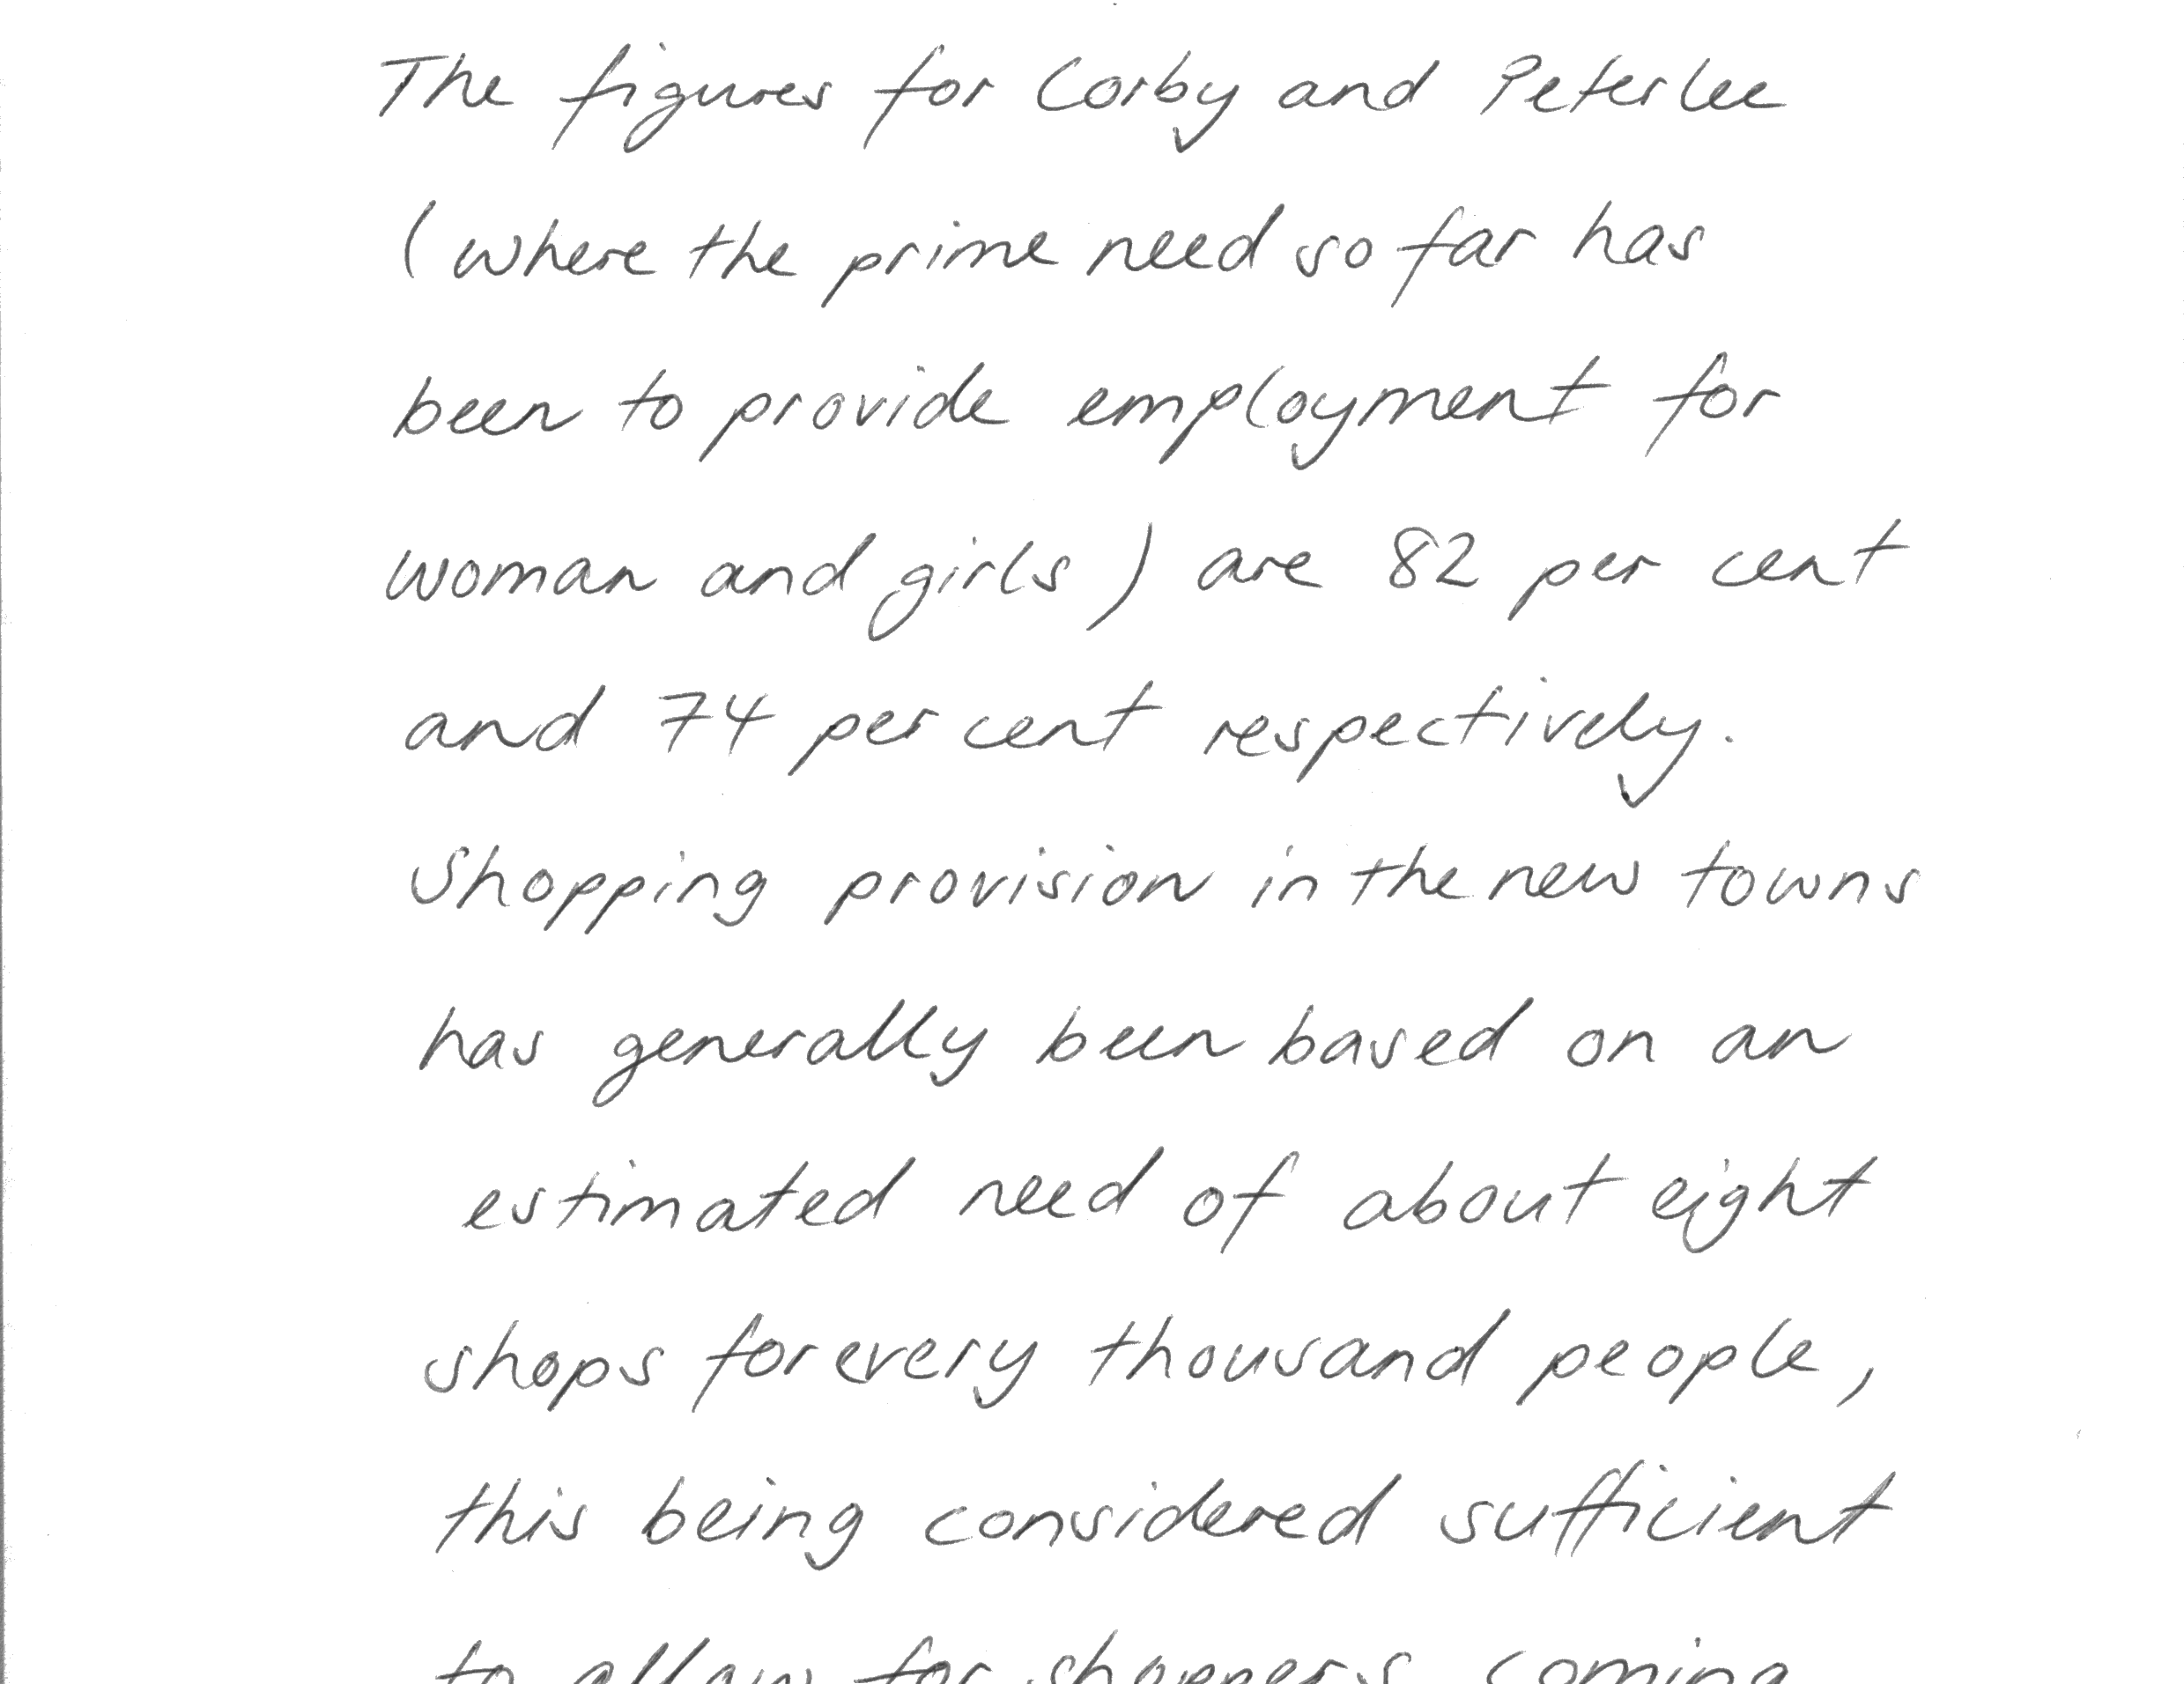 The figures for Corby and Peterlee
(where the prime need so far has
been to provide employment for
woman and girls) are 82 per cent
and 74 per cent respectively.
Shopping provision in the new towns
has generally been based on an
estimated need of about eight
shops for every thousand people,
this being considered sufficient
to allow for shoppers coming